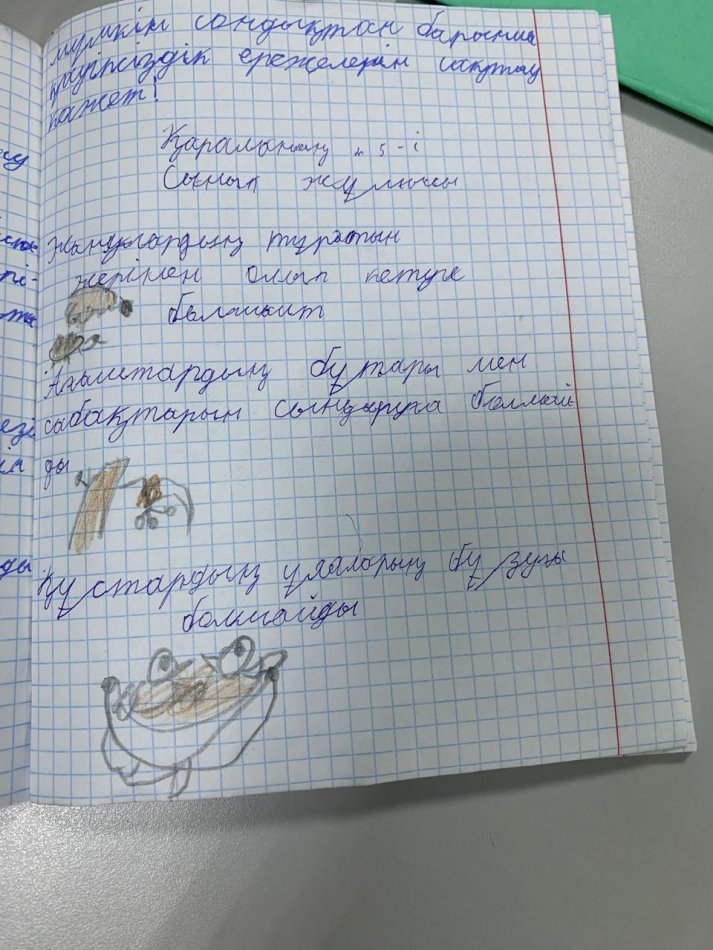 мүмкін сондықтан барынша
қауіпсіздік ережелерін сақтау
қажет!
Қаралының 5-і
Сынып жұмысы
Жануарлардың тұратын
жерінен алып кетуге
болмайт
Ағаштардың бұтары мен
сабақтарын сындыруға болмай
ды
Құстардың ұяларың бұзуғы
болмайды